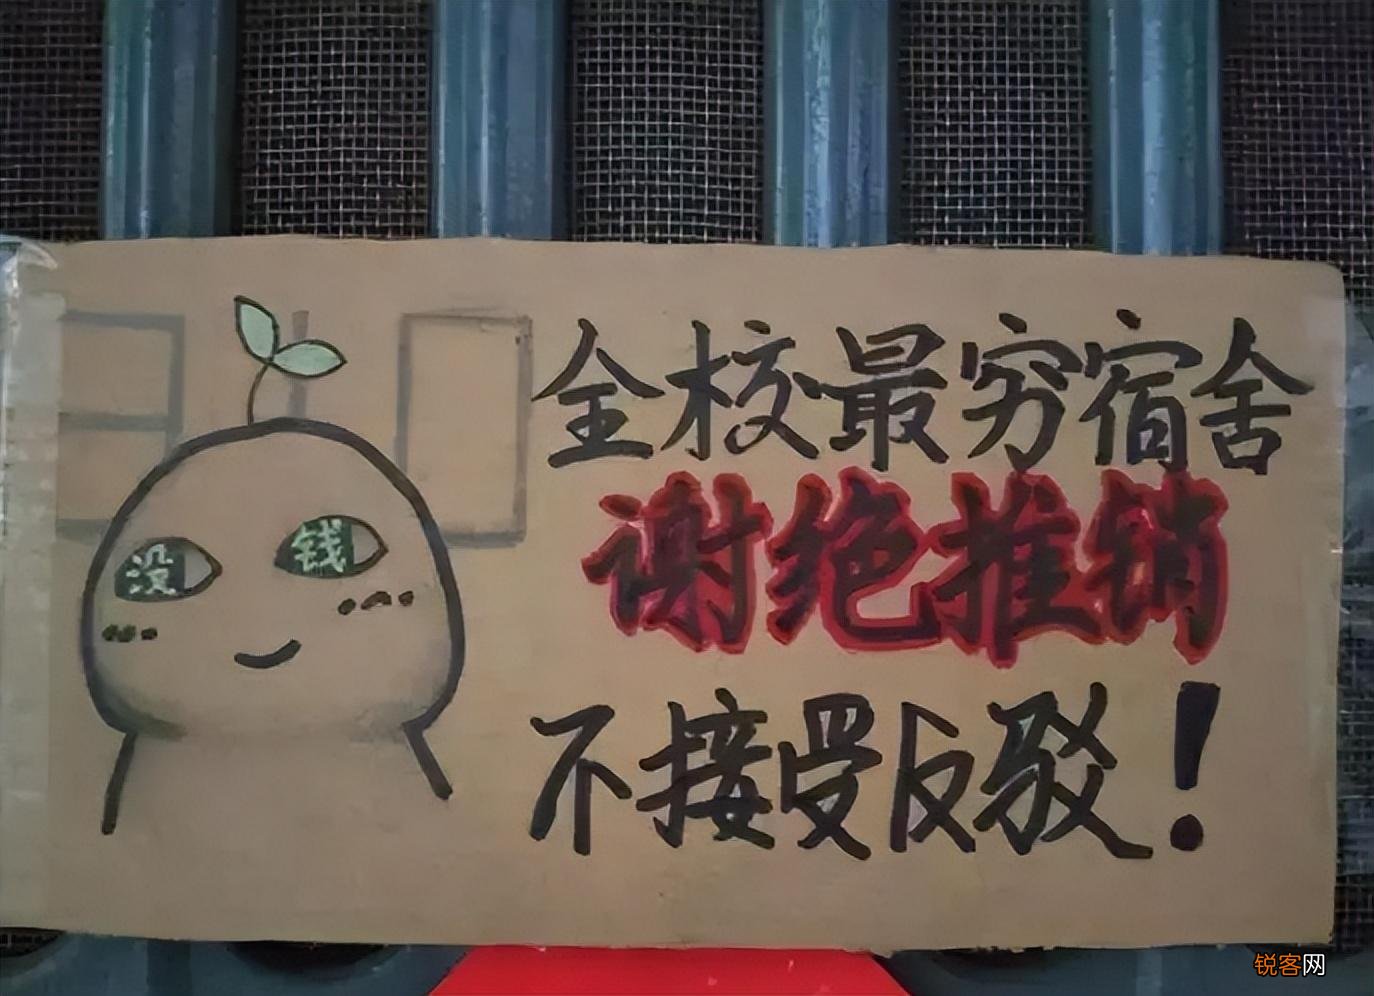 全校最穷宿舍
谢绝推销
不接受反驳！
没 钱
锐客网